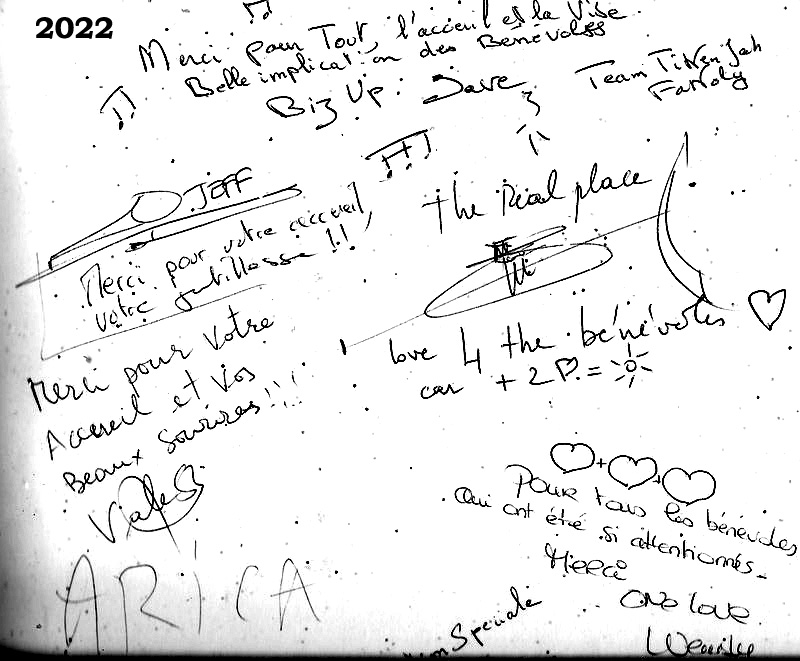 2022
Merci pour Tout, l'accueil et la Vibe
Belle implicat°on des Bénévoles
Big Up. Dave
Team
JEFF
Merci pour votre accueil,
votre gentillesse !!
The Real place
Merci pour Votre
Accueil et Vos
Beaux sourires!!!
love 4 the bénévoles ♡
car + 2 ♡ = ☼
♡+♡+♡
Pour tous les bénévoles
Qui ont été si attentionnés.
Merci
One love
ARICA
Speciale